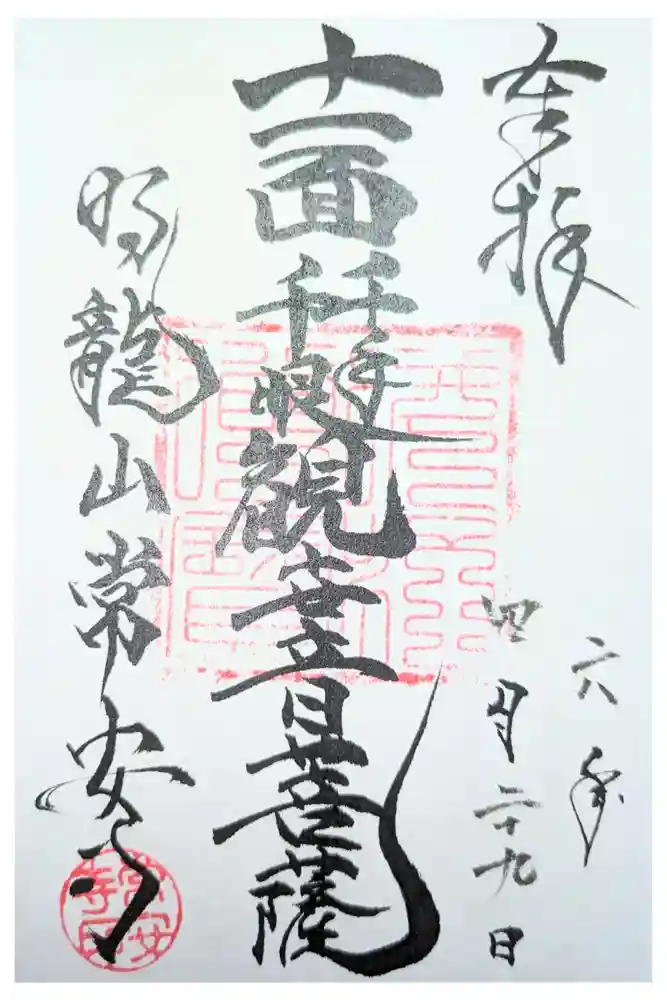 奉拝
六年
四月二十九日
十一面千手千眼観世音菩薩
龍山常安寺
常安寺印